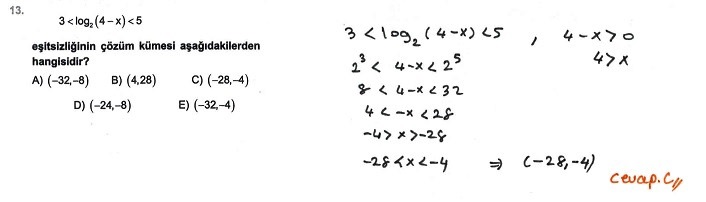 13.
3 < log₂(4 – x) < 5
eşitsizliğinin çözüm kümesi aşağıdakilerden
hangisidir?
A) (–32,–8) B) (4,28) C) (–28,–4)
D) (–24,–8) E) (–32,–4)
3 < log₂ (4-x) < 5 , 4-x > 0
2³ < 4-x < 2⁵ 4 > x
8 < 4-x < 32
4 < -x < 28
-4 > x > -28
-28 < x < -4 ⇒ (-28,-4)
Cevap.C//